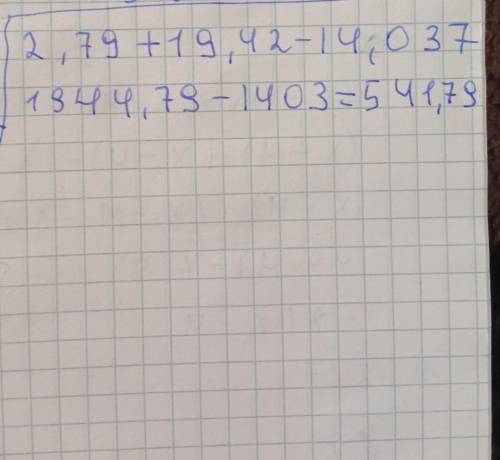 2,79+19,42-14,037
1944,79-1403=541,79